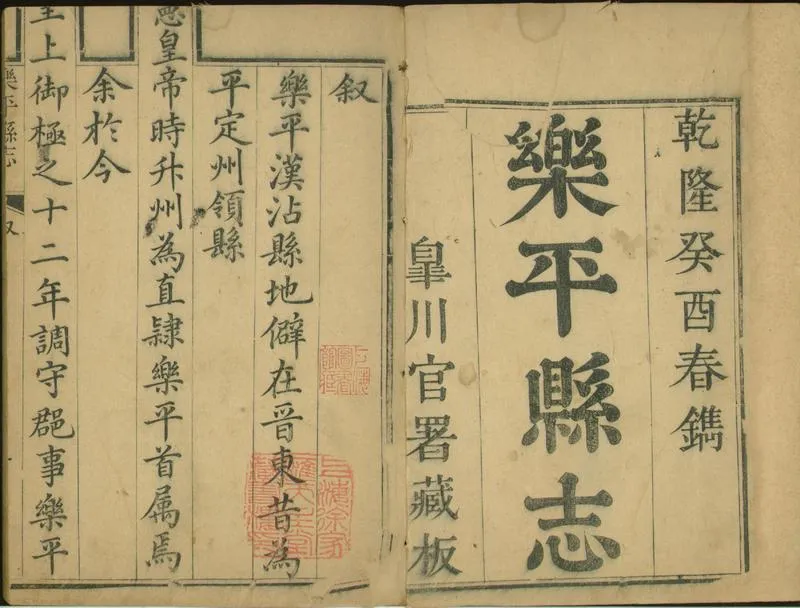 乾隆癸酉春鐫
樂平縣志
皐川官署藏板
叙
樂平漢沾縣地僻在晉東昔為
平定州領縣
憲皇帝時升州為直隸樂平首属焉
余於今
皇上御極之十二年調守郡事樂平
樂平縣志
叙